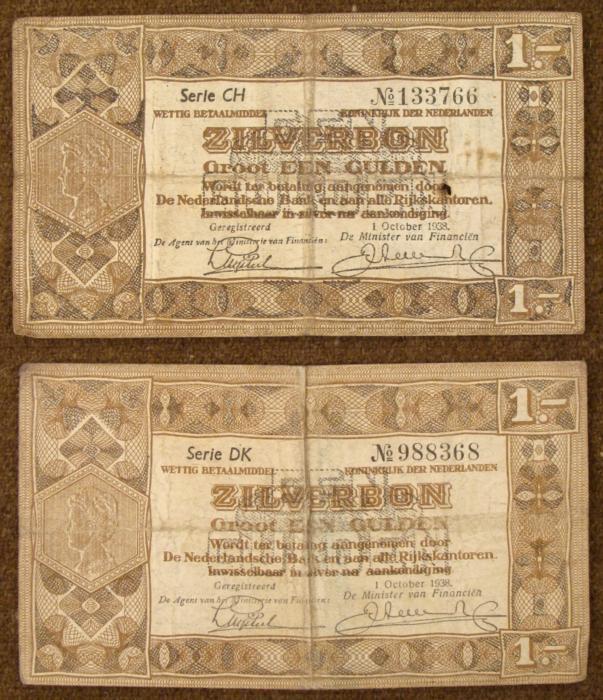 1.-
Serie CH
№133766
WETTIG BETAALMIDDEL
KONINKRIJK DER NEDERLANDEN
ZILVERBON
Groot EEN GULDEN
Wordt ter betaling aangenomen door
De Nederlandsche Bank en aan alle Rijkskantoren.
Inwisselbaar in zilver na aankondiging.
Geregistreerd
1 October 1938.
De Agent van het Ministerie van Financiën:
De Minister van Financiën
1.-
1.-
Serie DK
№988368
WETTIG BETAALMIDDEL
KONINKRIJK DER NEDERLANDEN
ZILVERBON
Groot EEN GULDEN
Wordt ter betaling aangenomen door
De Nederlandsche Bank en aan alle Rijkskantoren.
Inwisselbaar in zilver na aankondiging
Geregistreerd
1 October 1938.
De Agent van het Ministerie van Financiën:
De Minister van Financiën
1.-